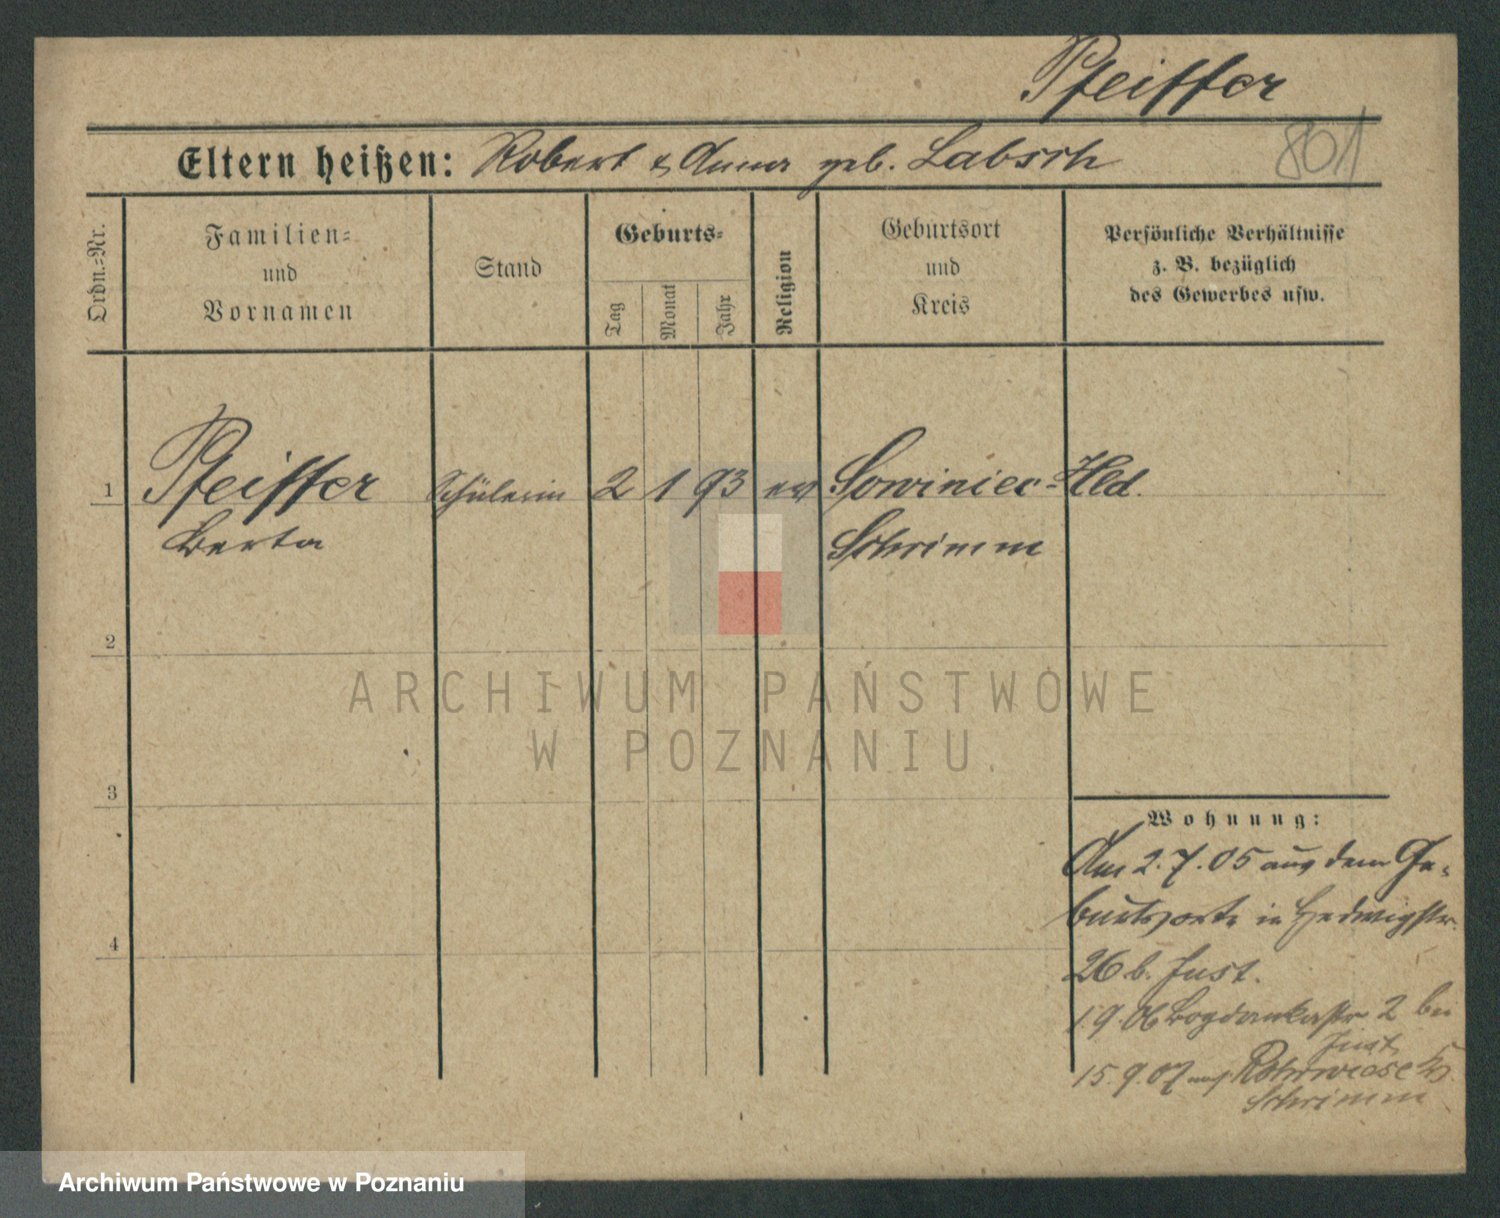 Pfeiffer
801
Eltern heißen: Robert & Anna geb. Labsch
Ordn.-Nr.
Familien-
und
Vornamen
Stand
Geburts-
Tag
Monat
Jahr
Religion
Geburtsort
und
Kreis
Persönliche Verhältnisse
z. B. bezüglich
des Gewerbes usw.
1 Pfeiffer Schülerin 2 1 93 ev Sowiniec-Hld.
Berta Schrimm
2
ARCHIWUM PAŃSTWOWE
W POZNANIU
3
Wohnung:
Am 2.7.05 aus dem Ge-
burtsorte in Hedwigstr.
4
26 b. Just.
1.9.06 Bogdankastr 2 bei
Just.
15.9.07 nach Rohrwiese Kr.
Schrimm
Archiwum Państwowe w Poznaniu